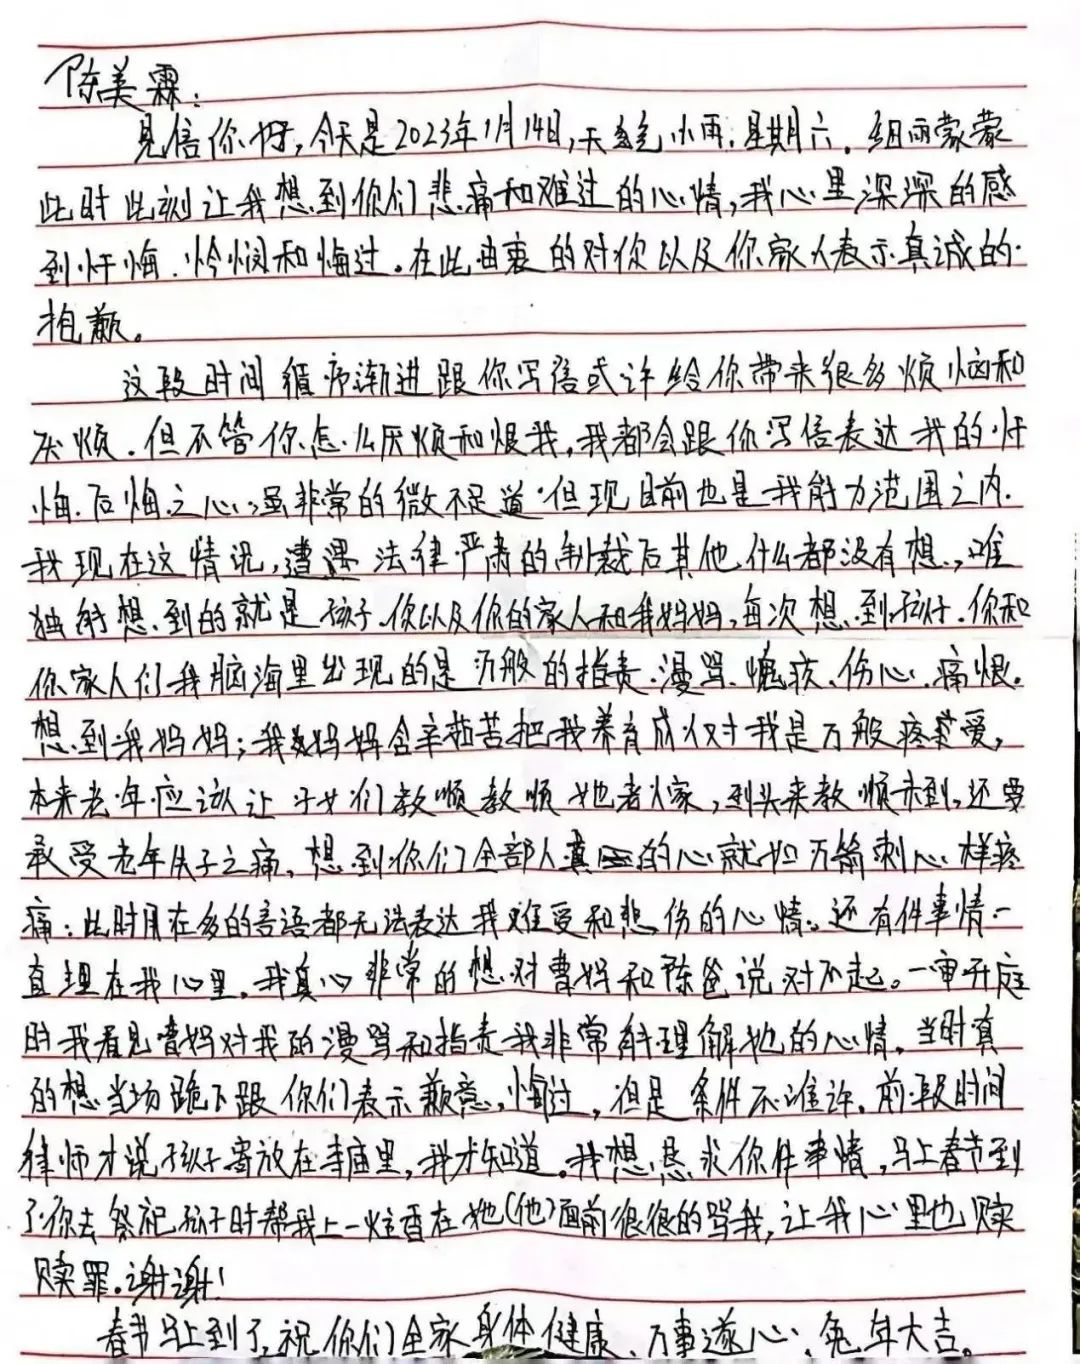 陈美霖:
见信你好,今天是2023年1月14日,天气小雨.星期六.细雨蒙蒙
此时此刻让我想到你们悲痛和难过的心情,我心里深深的感
到忏悔.怜悯和悔过。在此由衷的对你以及你家人表示真诚的
抱歉。
这段时间循序渐进跟你写信或许给你带来很多烦恼和
厌烦.但不管你怎么厌烦和恨我,我都会跟你写信表达我的忏
悔.后悔之心.虽非常的微不足道.但现目前也是我能力范围之内.
我现在这情况,遭遇法律严肃的制裁后其他什么都没有想.,唯
独能想到的就是孩子.你以及你的家人和我妈妈,每次想到孩子.你和
你家人们我脑海里出现的是万般的指责.漫骂.愧疚、伤心.痛恨.
想到我妈妈;我妈妈含辛茹苦把我养育成人对我是万般疼爱,
本来老年应该让子女们教顺教顺她老人家,到头来教顺未到,还要
承受老年失子之痛,想到你们全部人真的心就如万箭刺心样疼
痛:此时用在多的言语都无法表达我难受和悲伤的心情。还有件事情一
直埋在我心里.我真心非常的想对曹妈和陈爸说对不起。一审开庭
时我看见曹妈对我的漫骂和指责我非常能理解她的心情.当时真
的想当场跪下跟你们表示歉意,悔过,但是条件不准许.前段时间
律师才说孩子寄放在寺庙里,我才知道.我想恳求你件事情,马上春节到
了你去祭祀孩子时帮我上一炷香在她(他)面前很很的骂我,让我心里也赎
赎罪.谢谢!
春节马上到了,祝你们全家身体健康、万事遂心、兔年大吉。